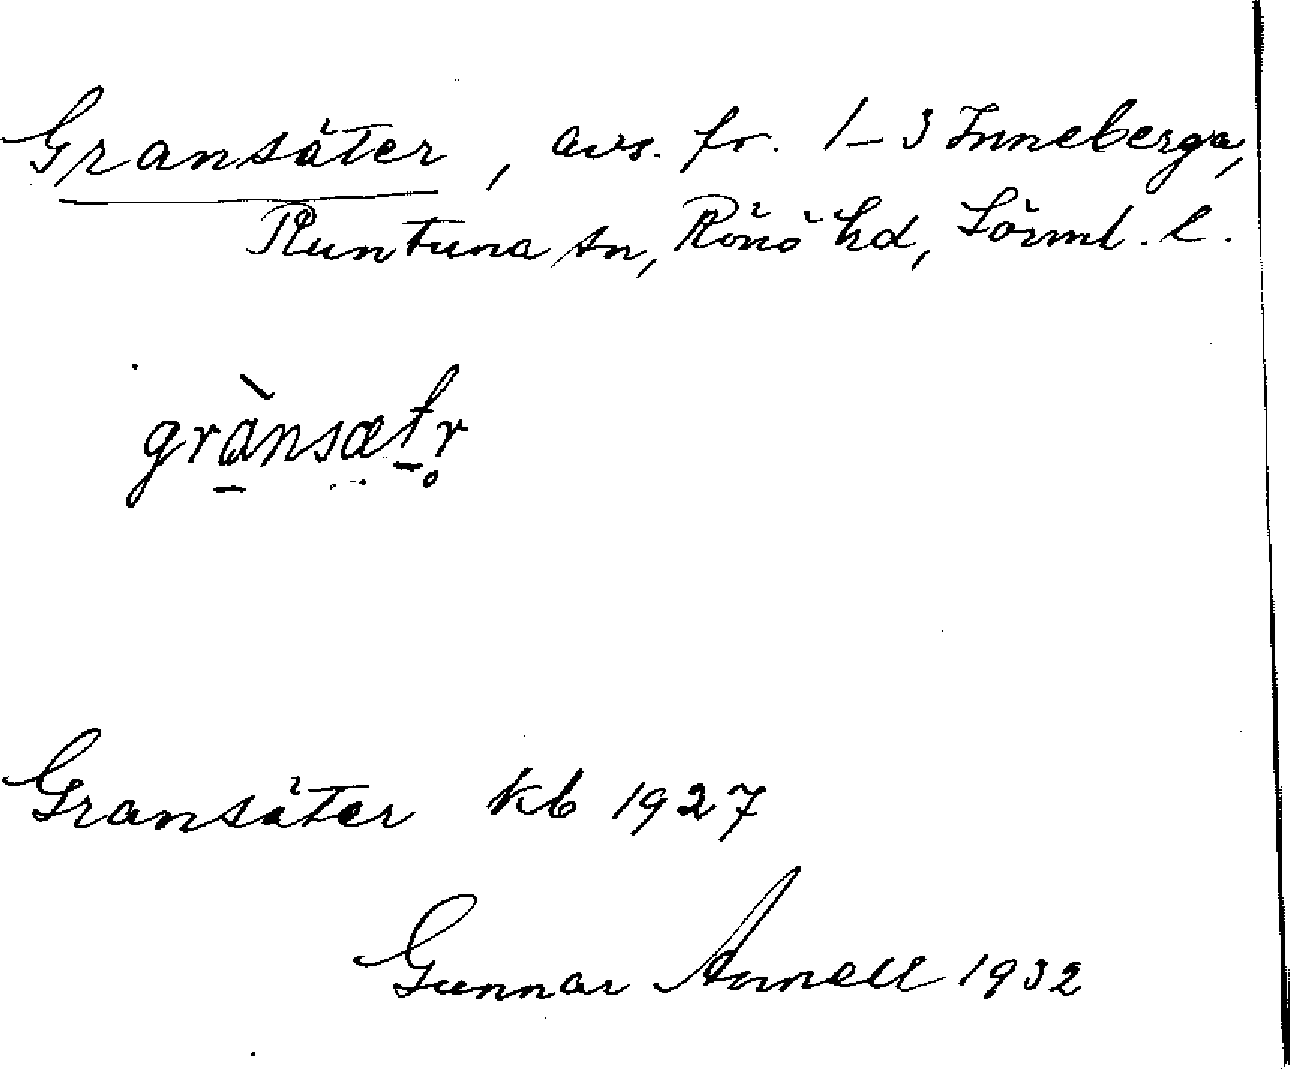 Gransäter, avs. fr. 1-3 Inneberga,
Runtuna sn, Rönö hd, Sörml. l.
grànsætr̥
Gransäter kb 1927
Gunnar Arnell 1932